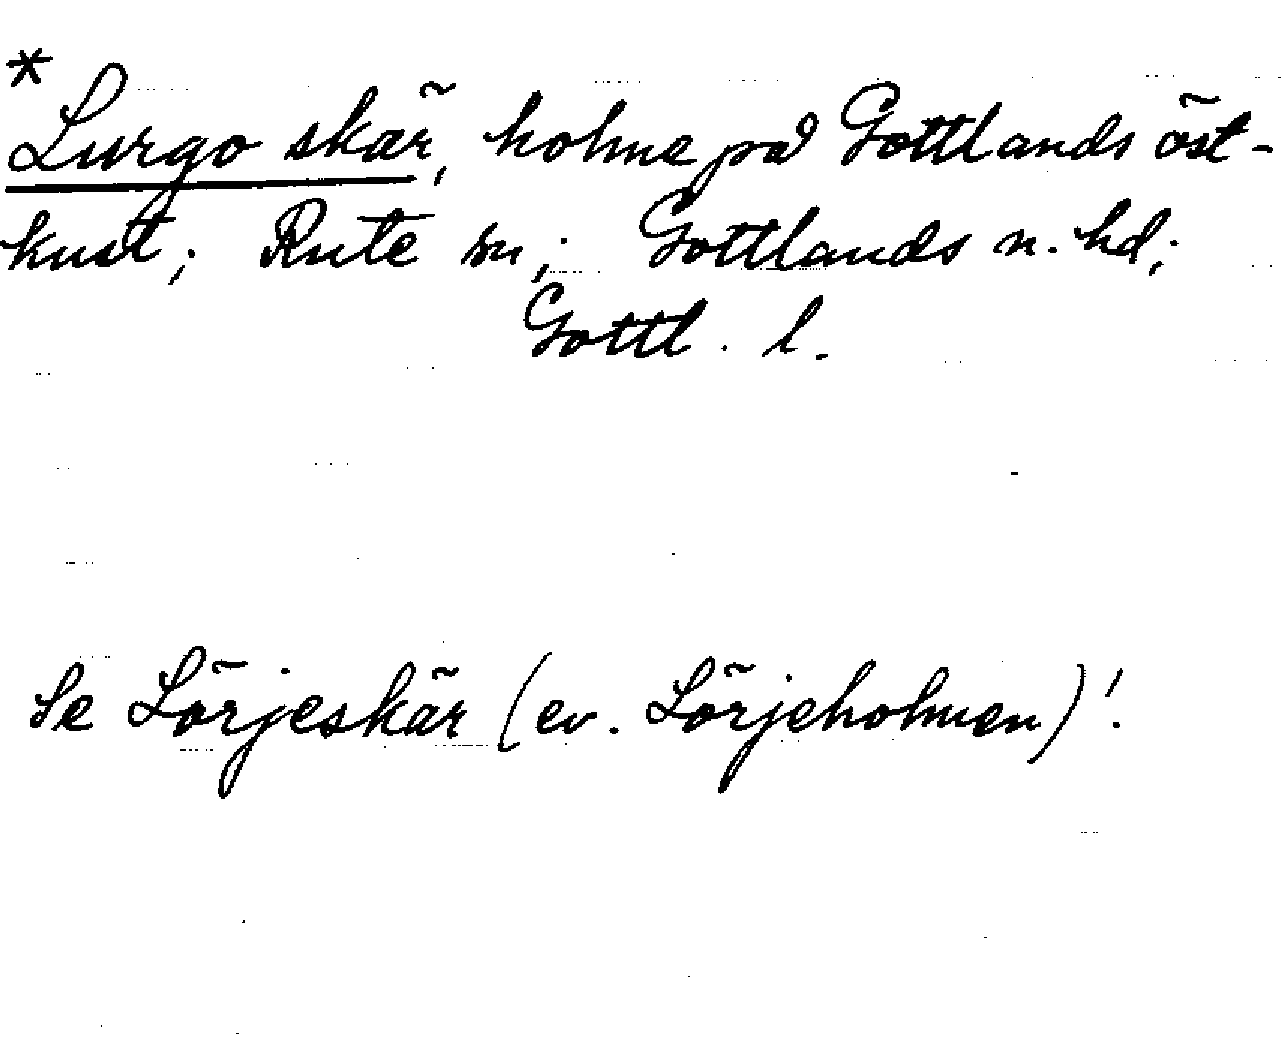 * Lurgo skär, holme på Gottlands öst-
kust; Rute sn; Gottlands n. hd;
Gottl. l.
Se Lörjeskär (ev. Lörjeholmen)!